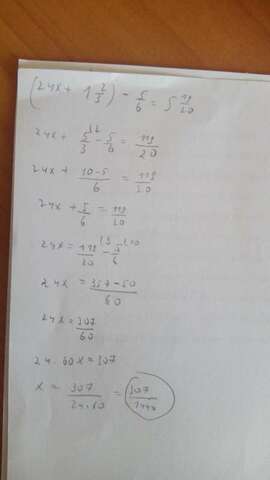 (24x + 1 2/3) - 5/6 = 5 19/20
24x + 5/3 - 5/6 = 119/20
24x + 10-5/6 = 119/20
24x + 5/6 = 119/20
24x = 119/20 - 5/6
24x = 357-50/60
24x = 307/60
24·60x = 307
x = 307/24·60 = 307/1440